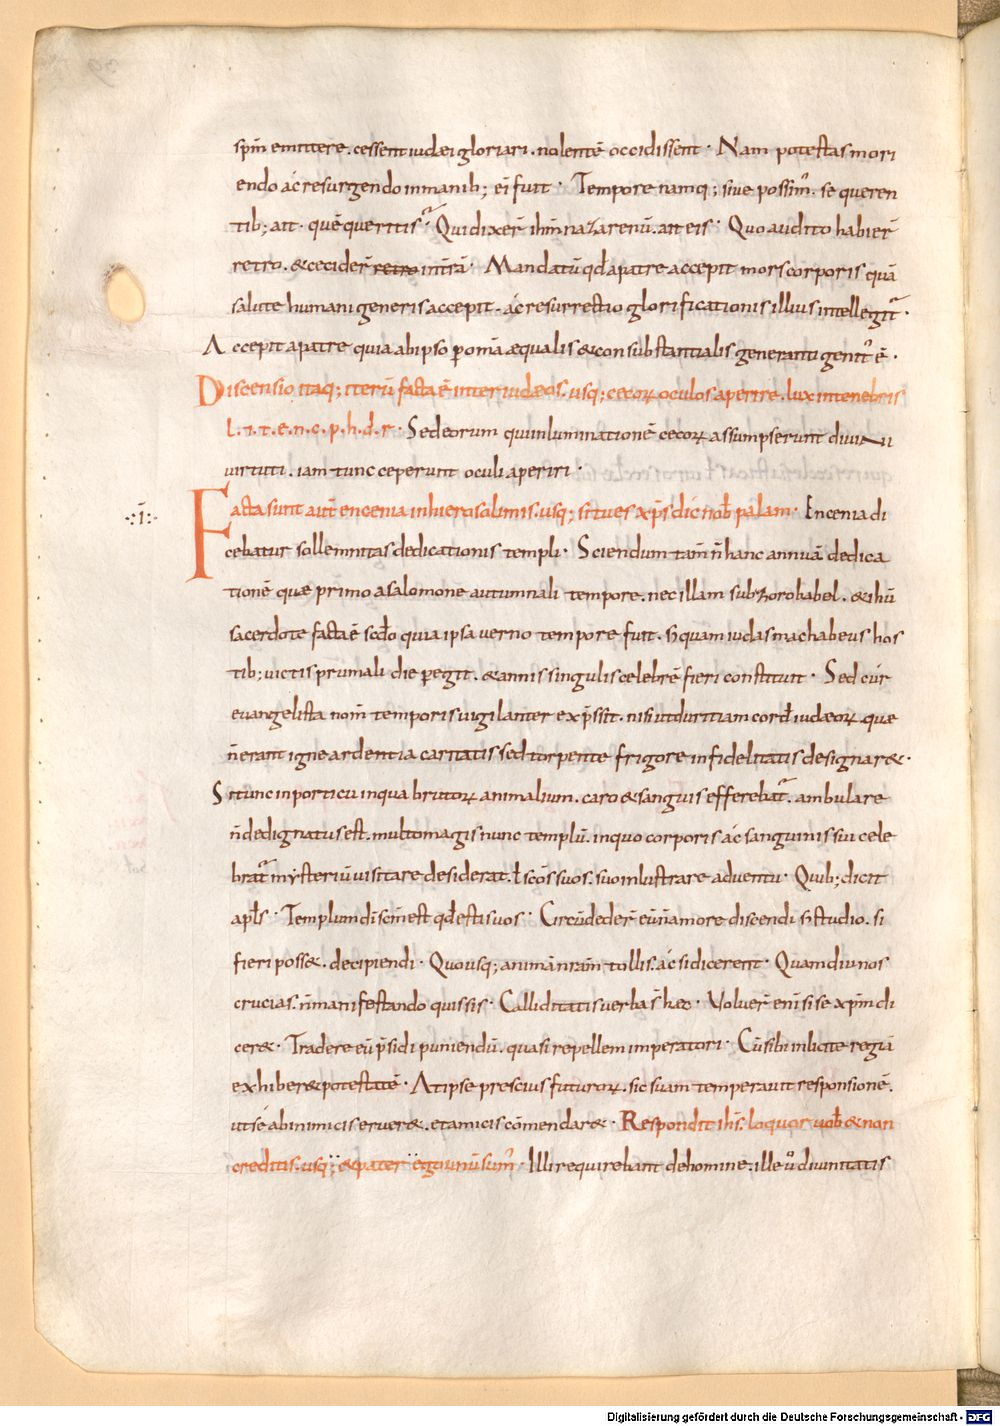 spm̄ emittere. cessent iudęi gloriari. nolentē occidissent · Nam potestas mori
endo ac resurgendo in manib; ei᷑ fuit · Tempore namq; sive possim᷒. se queren
tib; ait · quē queritis? Qui dixer̄ ihm̄ nazarenū. ait eis · Quo audito habier̄
retro. & cecider̄ retro in terrā · Mandatū qd̄ a patre accepit mors corporis quā
salute humani generis accepit. ac resurrectio glorificationis illius intellegit᷑ ·
Accepit a patre quia ab ipso p om̄a æqualis & consubstantialis generanti genit᷒ ē ·
Discensio itaq; iterū facta ē inter iudæos. usq; cecoꝝ oculos aperire. lux in tenebris
l. i. t. e. n. c. p. h. d. r · Sed eorum qui inluminationē cecoꝝ assumpserunt diuini
uirtuti. iam tunc ceperunt oculi aperiri ·
·:i:· Facta sunt aut̄ encenia in hierosolimis. usq; si tu es xp̄s dic nob̄ palam · Encenia di
cebatur sollemnitas dedicationis templi · Sciendum tam̄ n̄ hanc annuā dedica
tionē quæ primo a salomone autumnali tempore. nec illam sub zorobabel. & ihū
sacerdote facta ē scd̄o quia ipsa uerno tempore fuit. s; quam iudas machabeus hos
tib; uictis prumali die pegit. & annis singulis celebrē fieri constituit · Sed cur
euangelista nom̄ temporis uigilanter exp̄ssit. nisi ut duritiam cord̄ iudæoꝝ. quæ
n̄ erant igne ardentia caritatis sed torpente frigore infidelitatis designar& ·
Si tunc in porticu in qua brutoꝝ animalium. caro & sanguis efferebat᷑. ambulare
n̄ dedignatus est. multo magis nunc templū. in quo corporis ac sanguinis sui cele
brat᷑ mysteriū uisitare desiderat. ł sc̄os suos. suo inlustrare aduentu · Quib; dicit
apl̄s · Templum dī sc̄m est qd̄ estis uos · Circūdeder̄ eū n̄ amore discendi s; studio. si
fieri poss&. decipiendi · Quousq; animā nram̄ tollis. ac si dicerent · Quamdiu nos
crucias. n̄ manifestando qui sis sis · Calliditatis uerba s̄ hec · Voluer̄ eni᷑ si se xpm̄ di
cer& · Tradere eū p̄sidi puniendū. quasi rebellem imperatori · Cū sibi inlicite regiā
exhiber& potestatē · At ipse prescius futuroꝝ. sic suam temperauit responsionē.
ut se ab inimicis eruer&. et amicis cōmendar& · Respondit ihs̄. loquor uob̄ & non
creditis. usq; & pater & ego unū sum᷒ · Illi requirebant de homine. ille ū diuinitatis
Digitalisierung gefördert durch die Deutsche Forschungsgemeinschaft - DFG